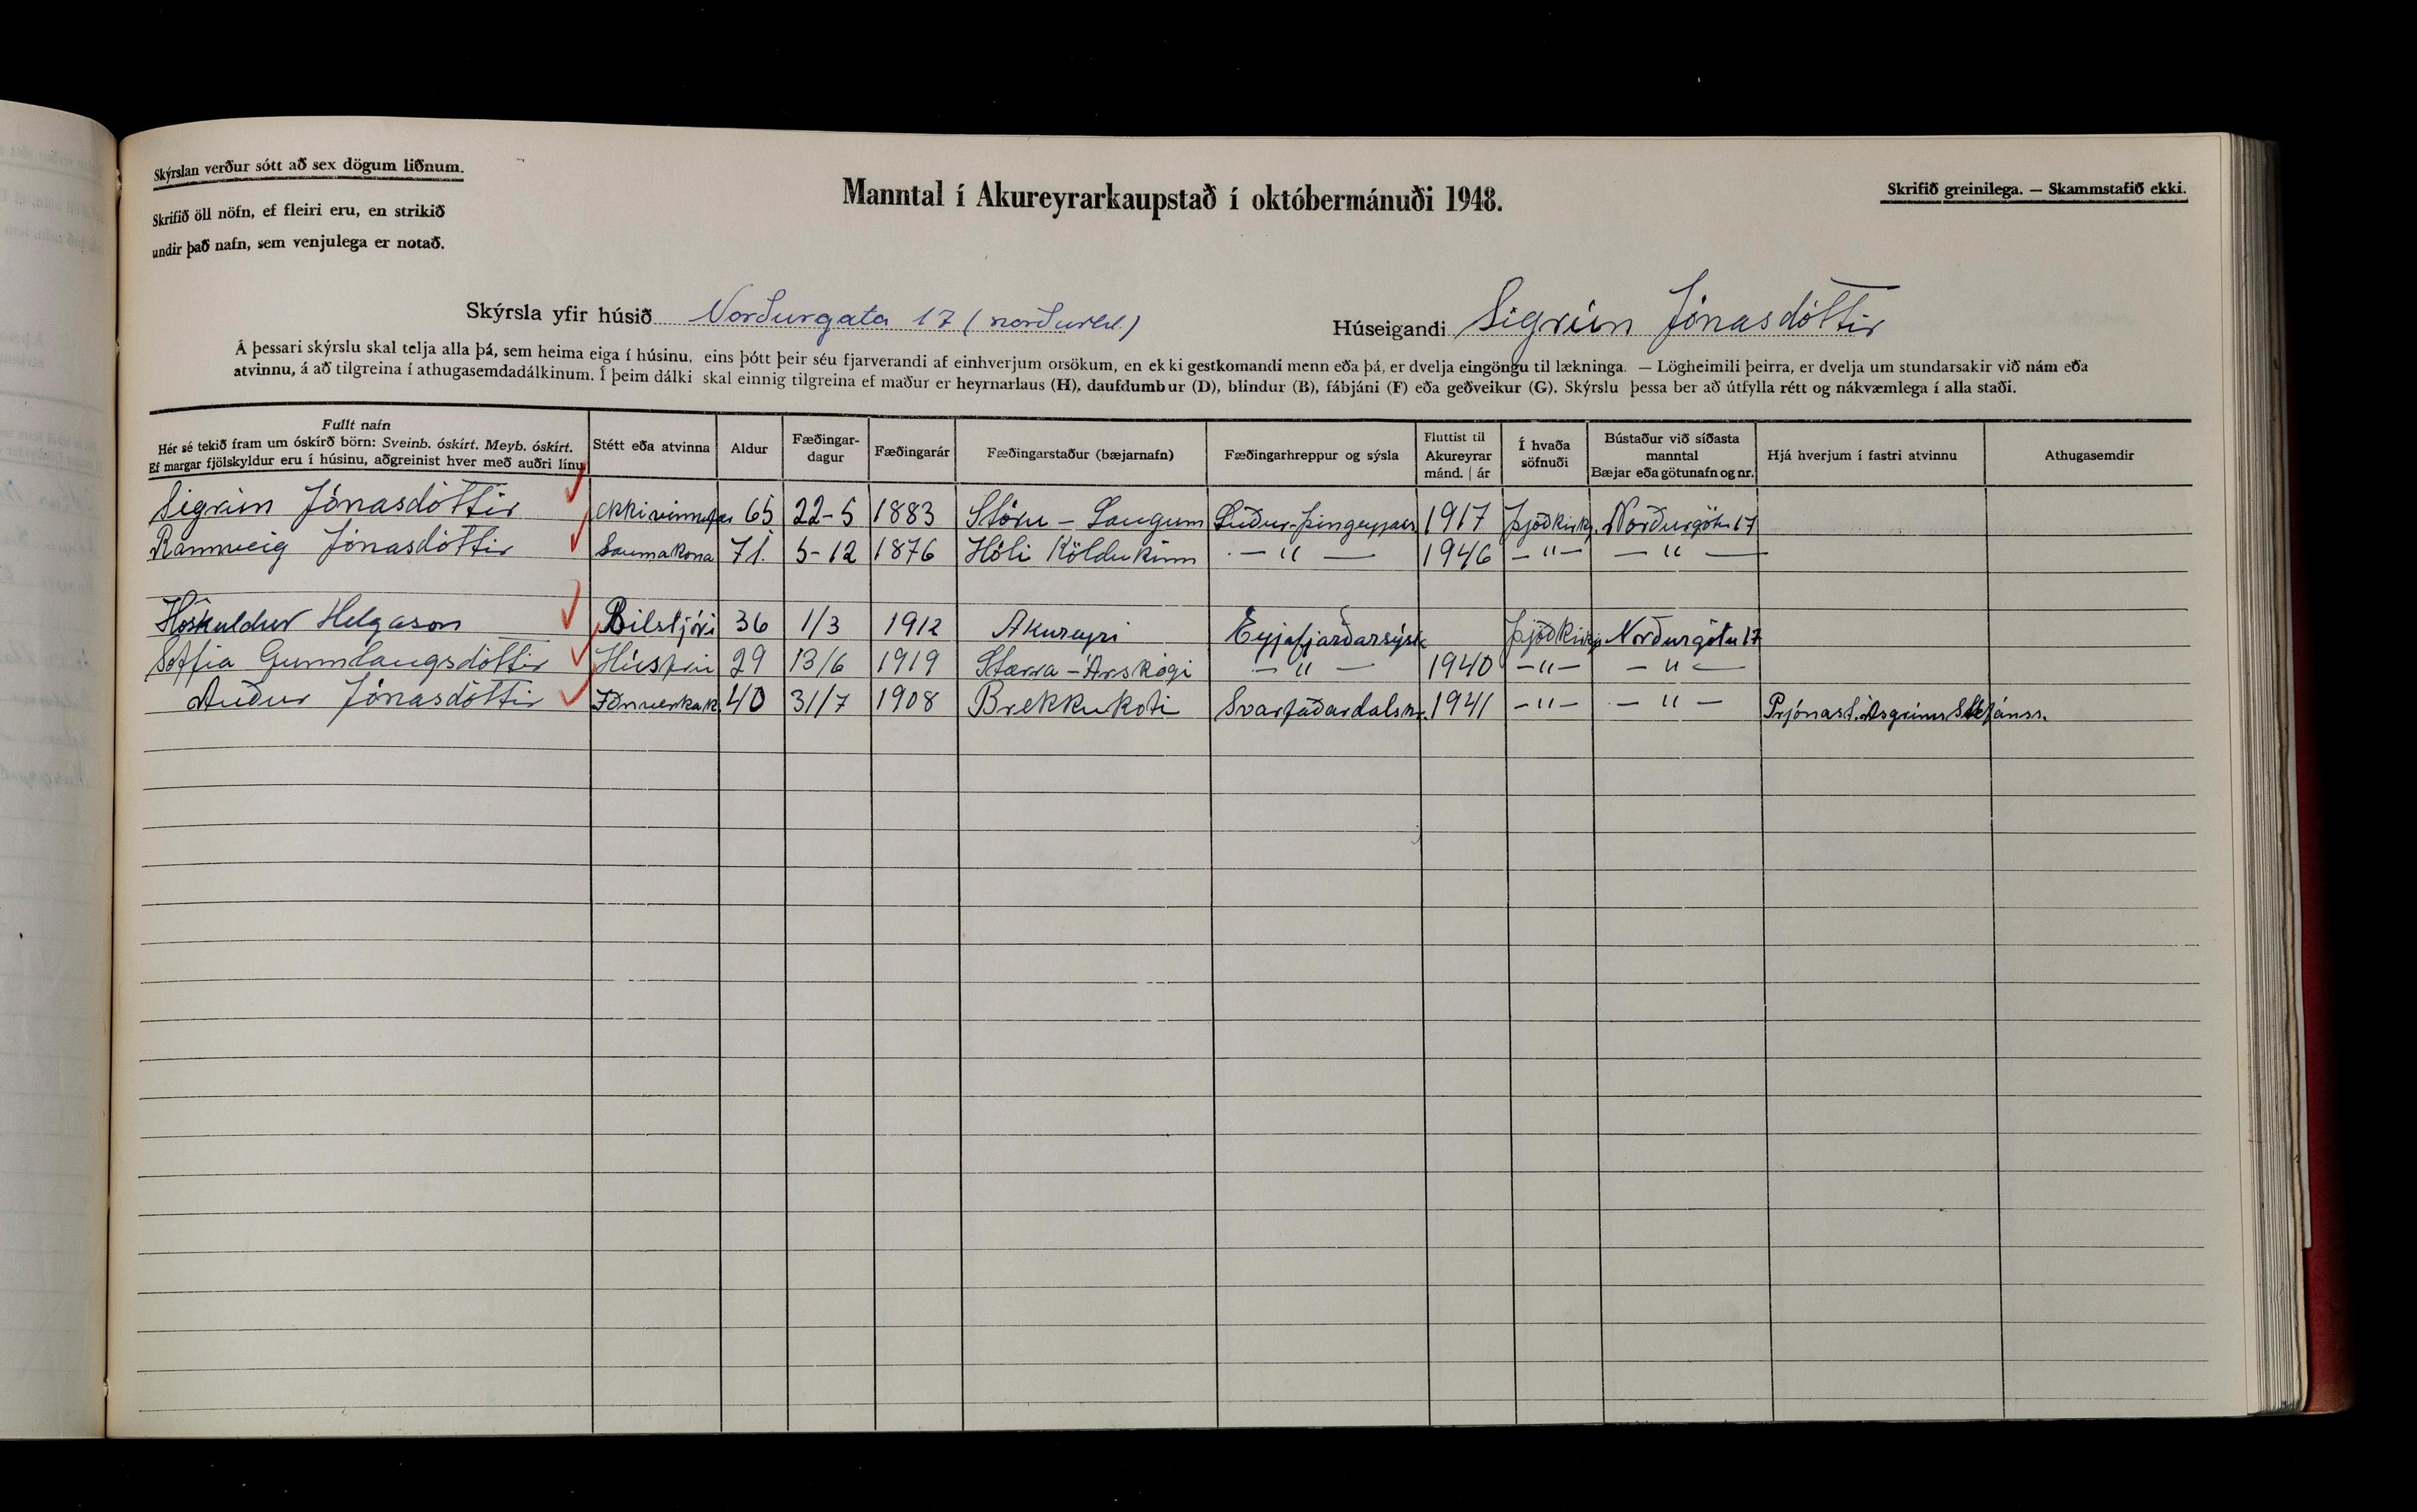 Skýrslan verður sótt að sex dögum liðnum.
Skrifið öll nöfn, ef fleiri eru, en strikið
undir það nafn, sem venjulega er notað.
Manntal í Akureyrarkaupstað í októbermánuði 1948.
Skrifið greinilega. — Skammstafið ekki.
Skýrsla yfir húsið Norðurgata 17 (norðurhl.)
Húseigandi Sigrún Jónasdóttir
Á þessari skýrslu skal telja alla þá, sem heima eiga í húsinu, eins þótt þeir séu fjarverandi af einhverjum orsökum, en ekki gestkomandi menn eða þá, er dvelja eingöngu til lækninga. — Lögheimili þeirra, er dvelja um stundarsakir við nám eða
atvinnu, á að tilgreina í athugasemdadálkinum. Í þeim dálki skal einnig tilgreina ef maður er heyrnarlaus (H), daufdumbur (D), blindur (B), fábjáni (F) eða geðveikur (G). Skýrslu þessa ber að útfylla rétt og nákvæmlega í alla staði.
Fullt nafn
Hér sé tekið fram um óskírð börn: Sveinb. óskírt. Meyb. óskírt.
Ef margar fjölskyldur eru í húsinu, aðgreinist hver með auðri línu
Stétt eða atvinna
Aldur
Fæðingar-
dagur
Fæðingarár
Fæðingarstaður (bæjarnafn)
Fæðingarhreppur og sýsla
Fluttist til
Akureyrar
mánd. | ár
Í hvaða
söfnuði
Bústaður við síðasta
manntal
Bæjar eða götunafn og nr.
Hjá hverjum í fastri atvinnu
Athugasemdir
Sigrún Jónasdóttir ekki vinnufær 65 22-5 1883 Stóru-Laugum Suður-Þingeyjars 1917 Þjóðkirkj. Norðurgötu 17
Rannveig Jónasdóttir Saumakona 71. 5-12 1876 Hóli Köldukinn — " — 1946 — " — — " —
Höskuldur Helgason Bílstjóri 36 1/3 1912 Akureyri Eyjafjarðarsýsla Þjóðkirkj. Norðurgötu 17
Soffia Gunnlaugsdóttir Húsfrú 29 13/6 1919 Stærra-Árskógi — " — 1940 — " — — " —
Auður Jónasdóttir Iðnverkak 40 31/7 1908 Brekkukoti Svarfaðardalshr. 1941 — " — — " — Prjónast. Ásgríms Stefánss.